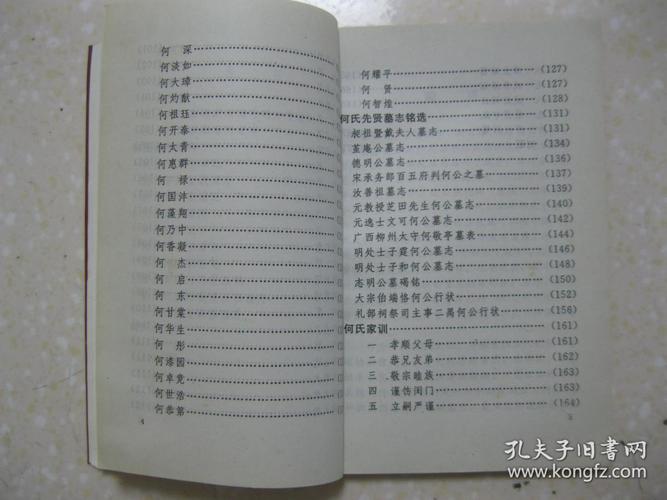 何 深
何淡如
何大璋
何灼猷
何祖珏
何开泰
何大青
何惠群
何 禄
何国沣
何藻翔
何乃中
何香凝
何 杰
何 启
何 东
何甘棠
何华生
何 彤
何漆园
何卓竞
何世浩
何恭第
4
何耀平 (127)
何 贤 (127)
何智煌 (128)
何氏先贤墓志铭选 (131)
昶祖暨戴夫人墓志 (131)
堇庵公墓志 (134)
德明公墓志 (136)
宋承务郎百五府判何公之墓 (137)
汝善祖墓志 (139)
元教授芝田先生何公墓志 (140)
元逸士文可何公墓志 (142)
广西柳州大守何敬亭墓表 (144)
明处士子霆何公墓志 (146)
明处士子和何公墓志 (148)
志明公墓碣铭 (150)
大宗伯端恪何公行状 (152)
礼部祠祭司主事二禺何公行状 (156)
何氏家训 (161)
一 孝顺父母 (161)
二 恭兄友弟 (162)
三 敬宗睦族 (163)
四 谨饬闺门 (163)
五 立嗣严谨 (164)
孔夫子旧书网
www.kongfz.com